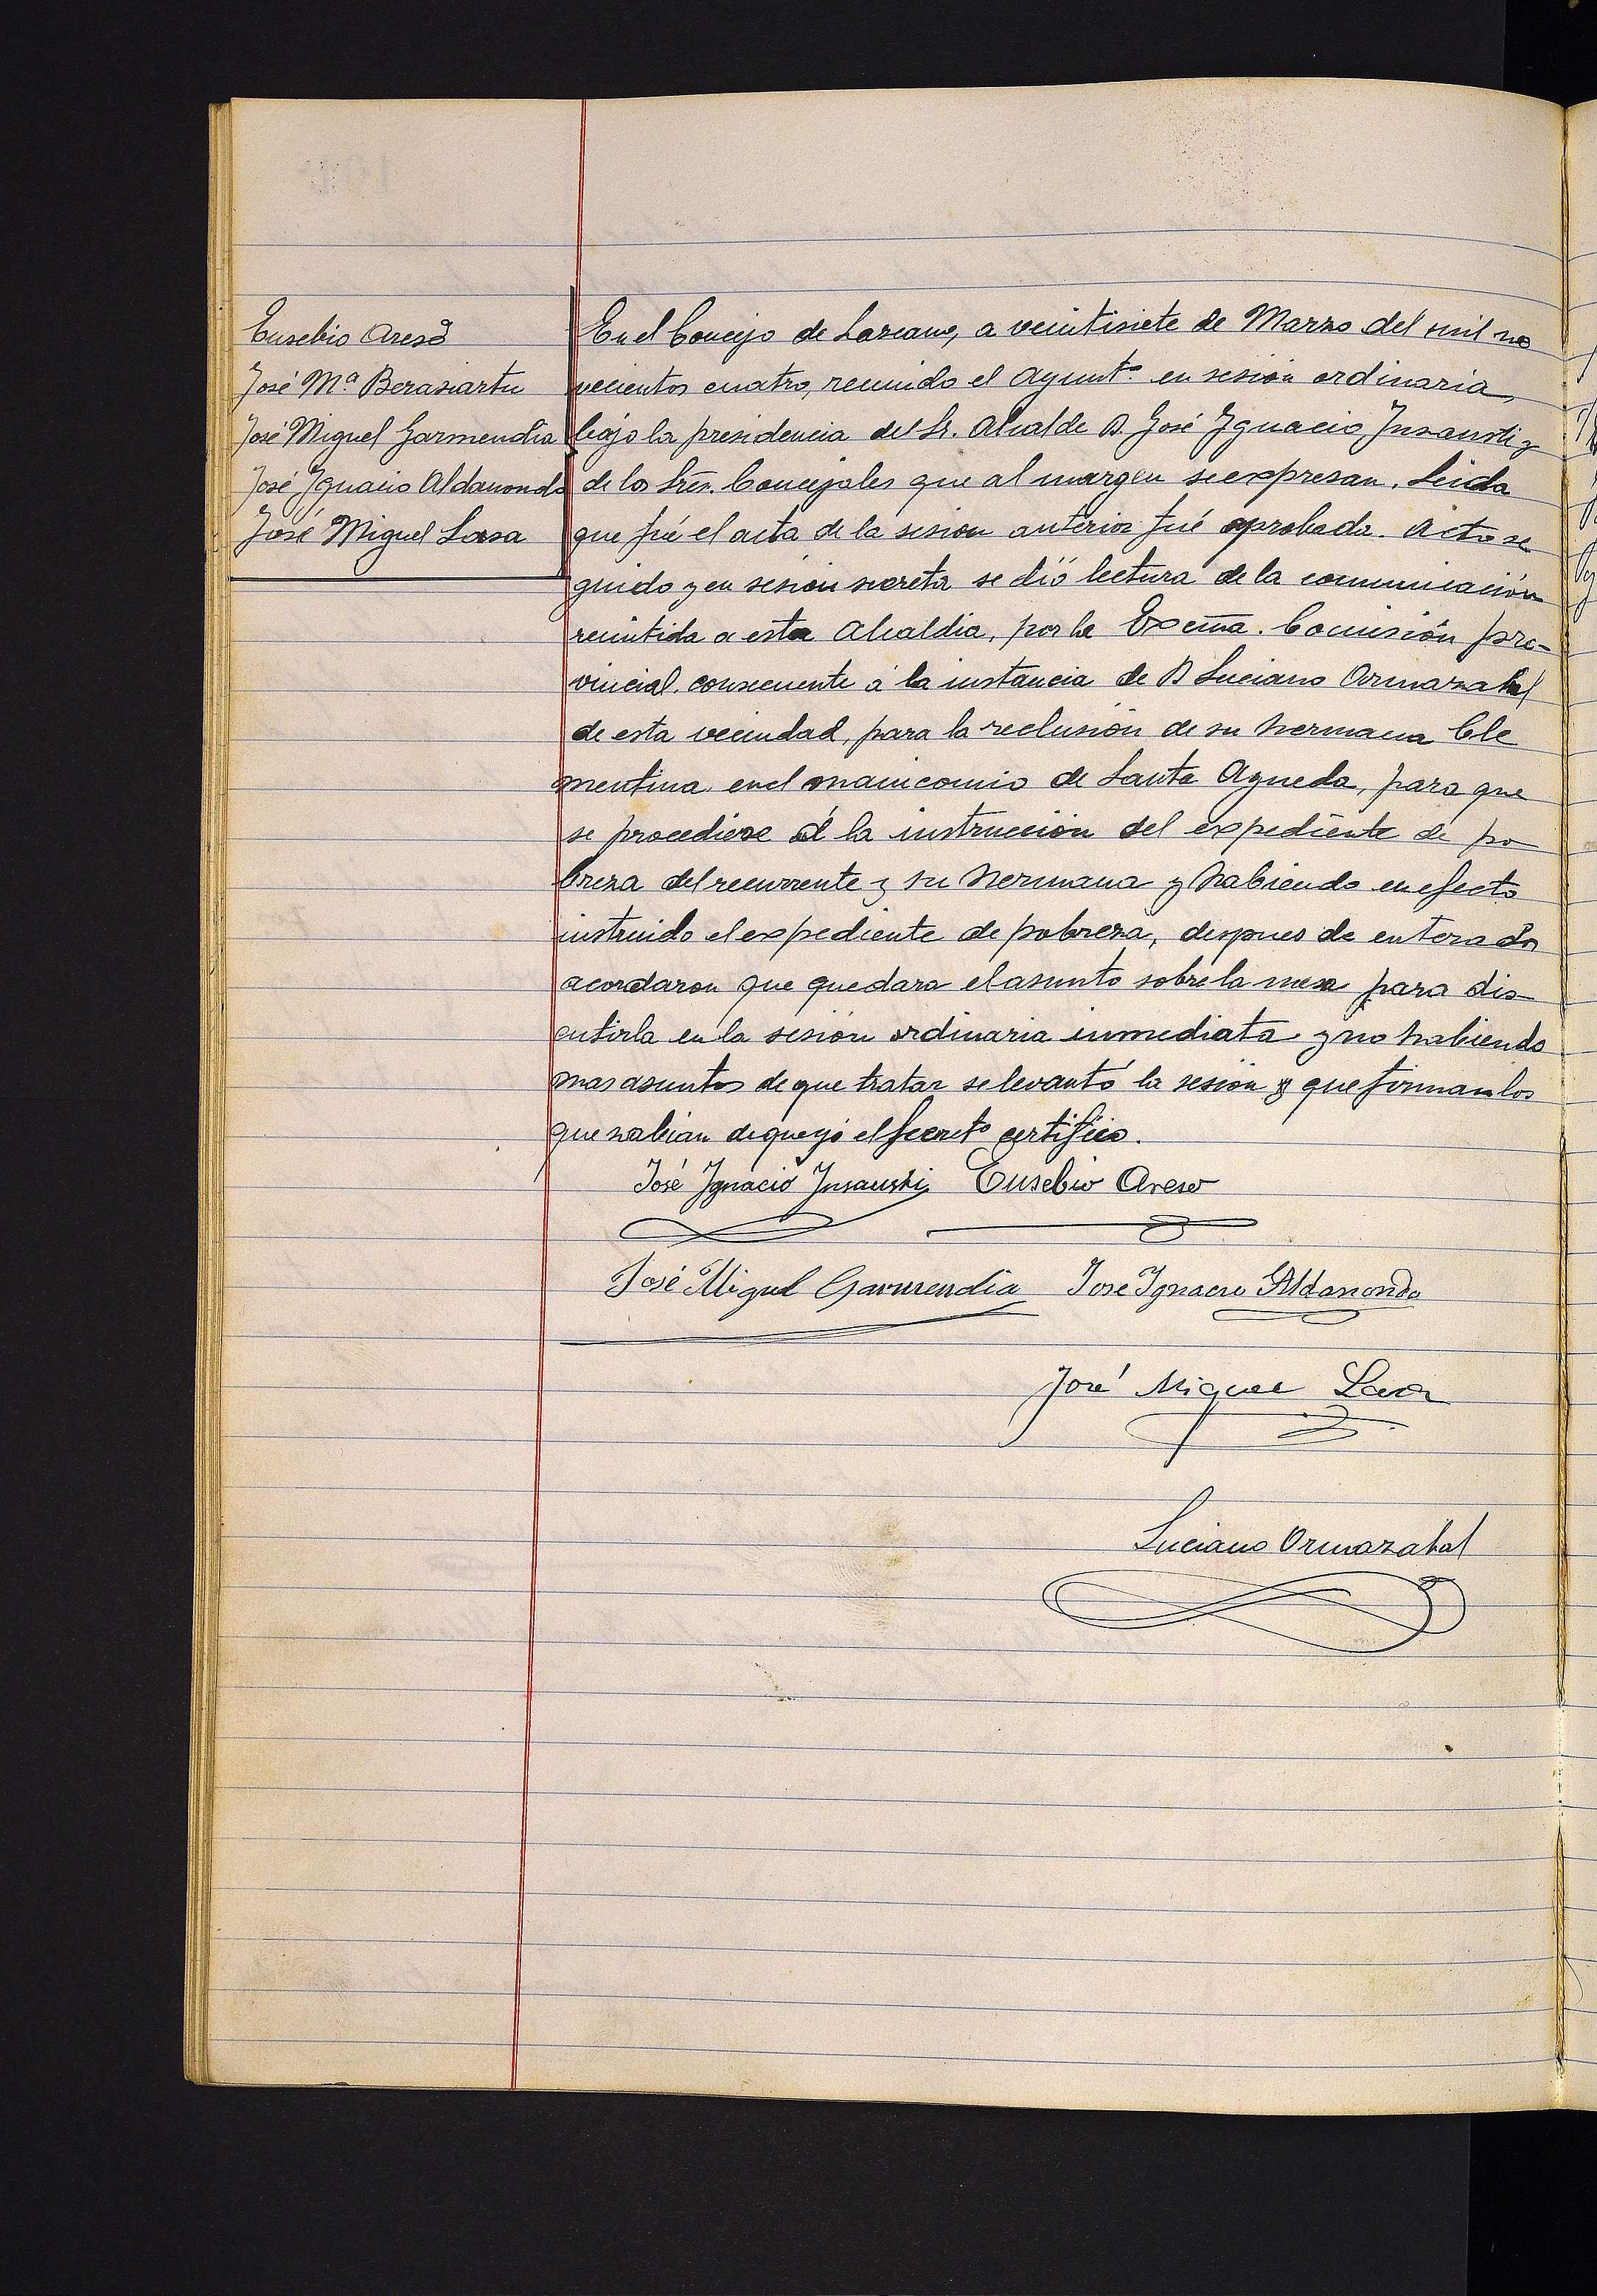 Eusebio Areso
José Mª Berasiartu
José Miguel Garmendia
José Ygnacio Aldanondo
José Miguel Lasa
En el Concejo de Lazcano, a veintisiete de Marzo del mil no
vecientos cuatro, reunido el Ayuntº en sesión ordinaria,
bajo la presidencia del Sr. Alcalde D. José Ygnacio Ynsausti y
de los Srés. Concejales que al margen se expresan. Leida
que fué el acta de la sesion anterior fué aprobada. Acto se
guido y en sesion secreta se dió lectura de la comunicación
remitida a esta Alcaldia, por la Excma. Comisión pro-
vincial. consecuente á la instancia de D Luciano Ormazabal
de esta vecindad, para la reclusión de su hermana Cle
mentina en el manicomio de Santa Agueda, para que
se procediese á la instrucción del expediente de po
breza del recurrente y su hermana y habiendo en efecto
instruido el expediente de pobreza, despues de enterados
acordaron que quedara el asunto sobre la mesa para dis-
cutirla en la sesión ordinaria inmediata y no habiendo
mas asuntos de que tratar se levantó la sesión y que firman los
que sabian de que yó el Secretº certifico.
José Ygnacio Ynsausti Eusebio Areso
José Miguel Garmendia Jose Ignacio Aldanondo
José Miguel Lasa
Luciano Ormazabal